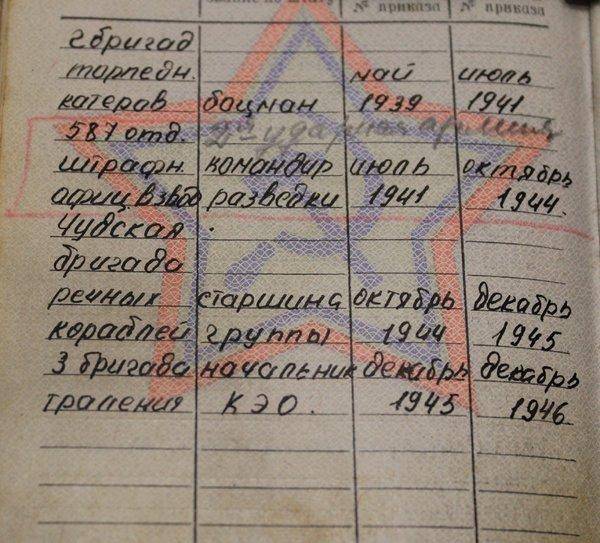 звание по штату № приказа № приказа
2 бригад
торпедн. май июль
катеров боцман 1939 1941
587 отд. 2я ударная армия
штрафн. командир июль октябрь
офиц взвод разведки 1941 1944.
Чудская
бригада
речных старшина октябрь декабрь
кораблей группы 1944 1945
3 бригада начальник декабрь декабрь
траления КЭО. 1945 1946